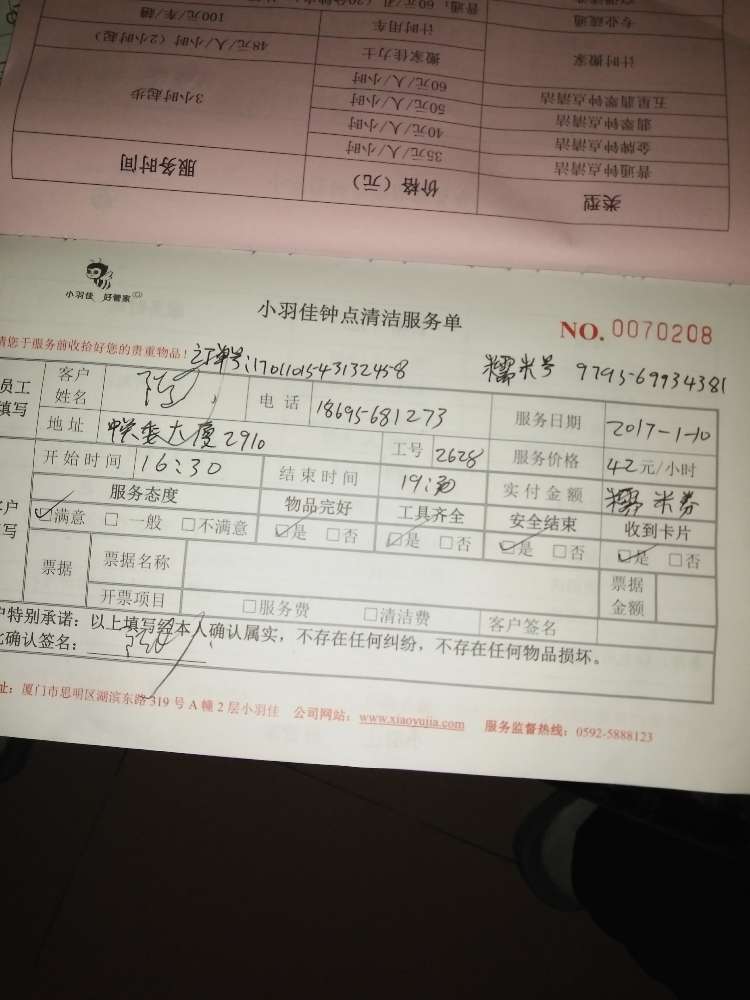 普通：60元/
专业疏通
100元/车/趟
计时用车
计时搬家
48元/人/小时（2小时起）
搬家佳力士
60元/人/小时
五星翡翠钟点清洁
3小时起步
50元/人/小时
翡翠钟点清洁
40元/人/小时
金牌钟点清洁
35元/人/小时
普通钟点清洁
服务时间
价格（元）
类型
小羽佳 好管家
小羽佳钟点清洁服务单
NO. 0070208
请您于服务前收拾好您的贵重物品！ 订单号：1701101543132458 糯米号 9795-69934381
员工填写 客户姓名 电话 18695681273 服务日期 2017-1-10
地址 大厦2910 工号 2628 服务价格 42元/小时
开始时间 16:30 结束时间 19:30 实付金额 糯米券
服务态度 物品完好 工具齐全 安全结束 收到卡片
☑满意 □一般 □不满意 ☑是 □否 ☑是 □否 ☑是 □否 ☑是 □否
票据 票据名称 票据金额
开票项目 □服务费 □清洁费 客户签名
户特别承诺：以上填写经本人确认属实，不存在任何纠纷，不存在任何物品损坏。
此确认签名：
址：厦门市思明区湖滨东路319号A幢2层小羽佳 公司网站：www.xiaoyujia.com 服务监督热线：0592-5888123